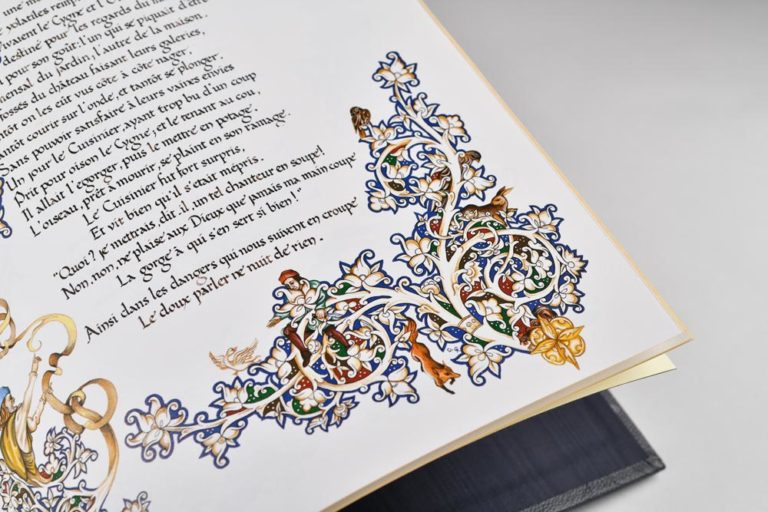 volatiles
Vivaient le Cygne et l'
destiné pour les regards du
pour son goût: l'un qui se piquait d'être
du jardin, l'autre de la maison.
fossés du château faisant leurs galeries,
on les eût vus côte à côte nager,
Tantôt courir sur l'onde, et tantôt se plonger,
Sans pouvoir satisfaire à leurs vaines envies
Un jour le Cuisinier, ayant trop bu d'un coup
Prit pour oison le Cygne, et le tenant au cou,
Il allait l'égorger, puis le mettre en potage.
L'oiseau, prêt à mourir, se plaint en son ramage.
Le Cuisinier fut fort surpris,
Et vit bien qu'il s'était mépris.
"Quoi? je mettrais, dit-il, un tel chanteur en soupe!
Non, non, ne plaise aux Dieux que jamais ma main coupe
La gorge à qui s'en sert si bien!"
Ainsi dans les dangers qui nous suivent en croupe
Le doux parler ne nuit de rien.